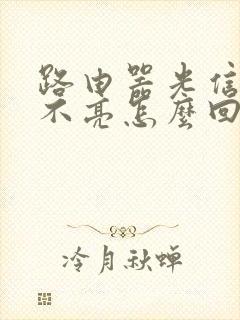 路由器光信
不亮怎麼回
冷月秋蝉